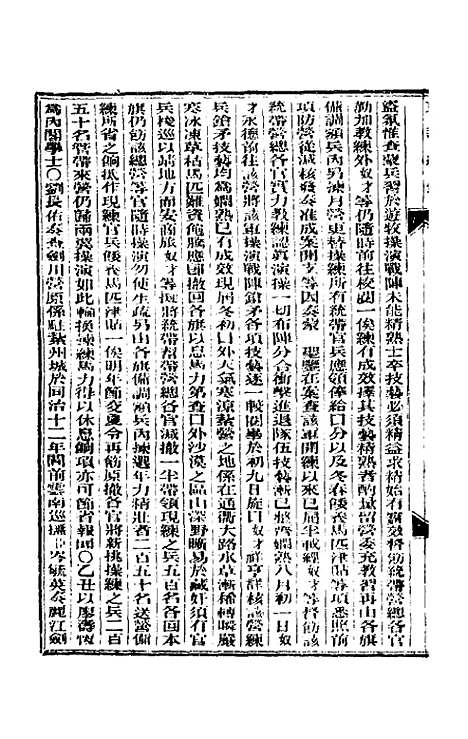 盜氛惟查蒙兵習於遊牧操演戰陣未能精熟士卒技藝必須精益求精始有實效督飭統帶營總各官
勤加教練外奴才等仍隨時前往校閱一俟練有成效擇其技藝精熟者酌留營委充教習再由各旗
備調額兵內另揀月營更替操練所有統帶官兵應領俸給口分以及冬春餧養馬匹津貼等項悉照前
項防營從減核發奏准成案開支等因奏蒙 聖鑒在案查該軍開練以來已屆半載經奴才等督飭該
統帶營總各官實力教練認真演操一切布陣分合衝擊進退隊伍技藝漸已整齊嫻熟八月初一日奴
才永德前往該營將該軍操演戰陣鎗矛各項技藝逐一較閱事畢於初九日旋口奴才祥亨詳核該營練
兵鎗矛技藝均為嫻熟已有成效現屆冬初口外天氣寒涼紮營之地係在通衢大路水草漸稀轉瞬嚴
寒冰凍草枯馬匹難資餧牧應即撤回各旗以息馬力第查口外沙漠之區山深野曠易於藏奸須有官
兵梭巡以靖地方而安商旅奴才等擬將統帶幫帶營總各官減撤一半帶領現練之兵五百名各回本
旗仍飭該總營等官隨時操演勿使生疏另由各旗備調額兵內揀選年力精壯者二百五十名送營備
練所省之餉抵作現練官兵餧養馬匹津貼一俟明年節交夏令再飭原撤各官將新挑操練之兵二百
五十名管帶來營仍歸兩翼操演如此輪換操練馬力得以休息餉項亦可節省報聞○乙丑以廖壽恆
為內閣學士○劉長佑奏查劍川營原係駐紮州城於同治十二年閒前雲南巡撫岑毓英奏麗江劍